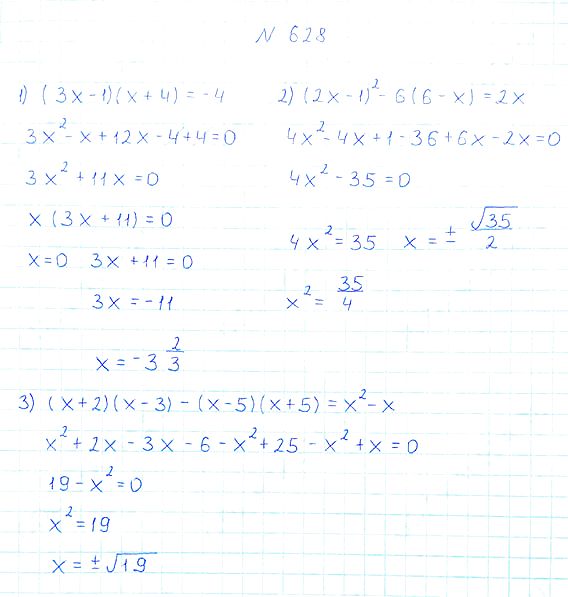 N 628
1) (3x-1)(x+4) = -4
3x²-x+12x-4+4=0
3x²+11x=0
x(3x+11)=0
x=0 3x+11=0
3x=-11
x=-3 2/3
2) (2x-1)²-6(6-x)=2x
4x²-4x+1-36+6x-2x=0
4x²-35=0
4x²=35 x=±√35/2
x²=35/4
3) (x+2)(x-3)-(x-5)(x+5)=x²-x
x²+2x-3x-6-x²+25-x²+x=0
19-x²=0
x²=19
x=±√19